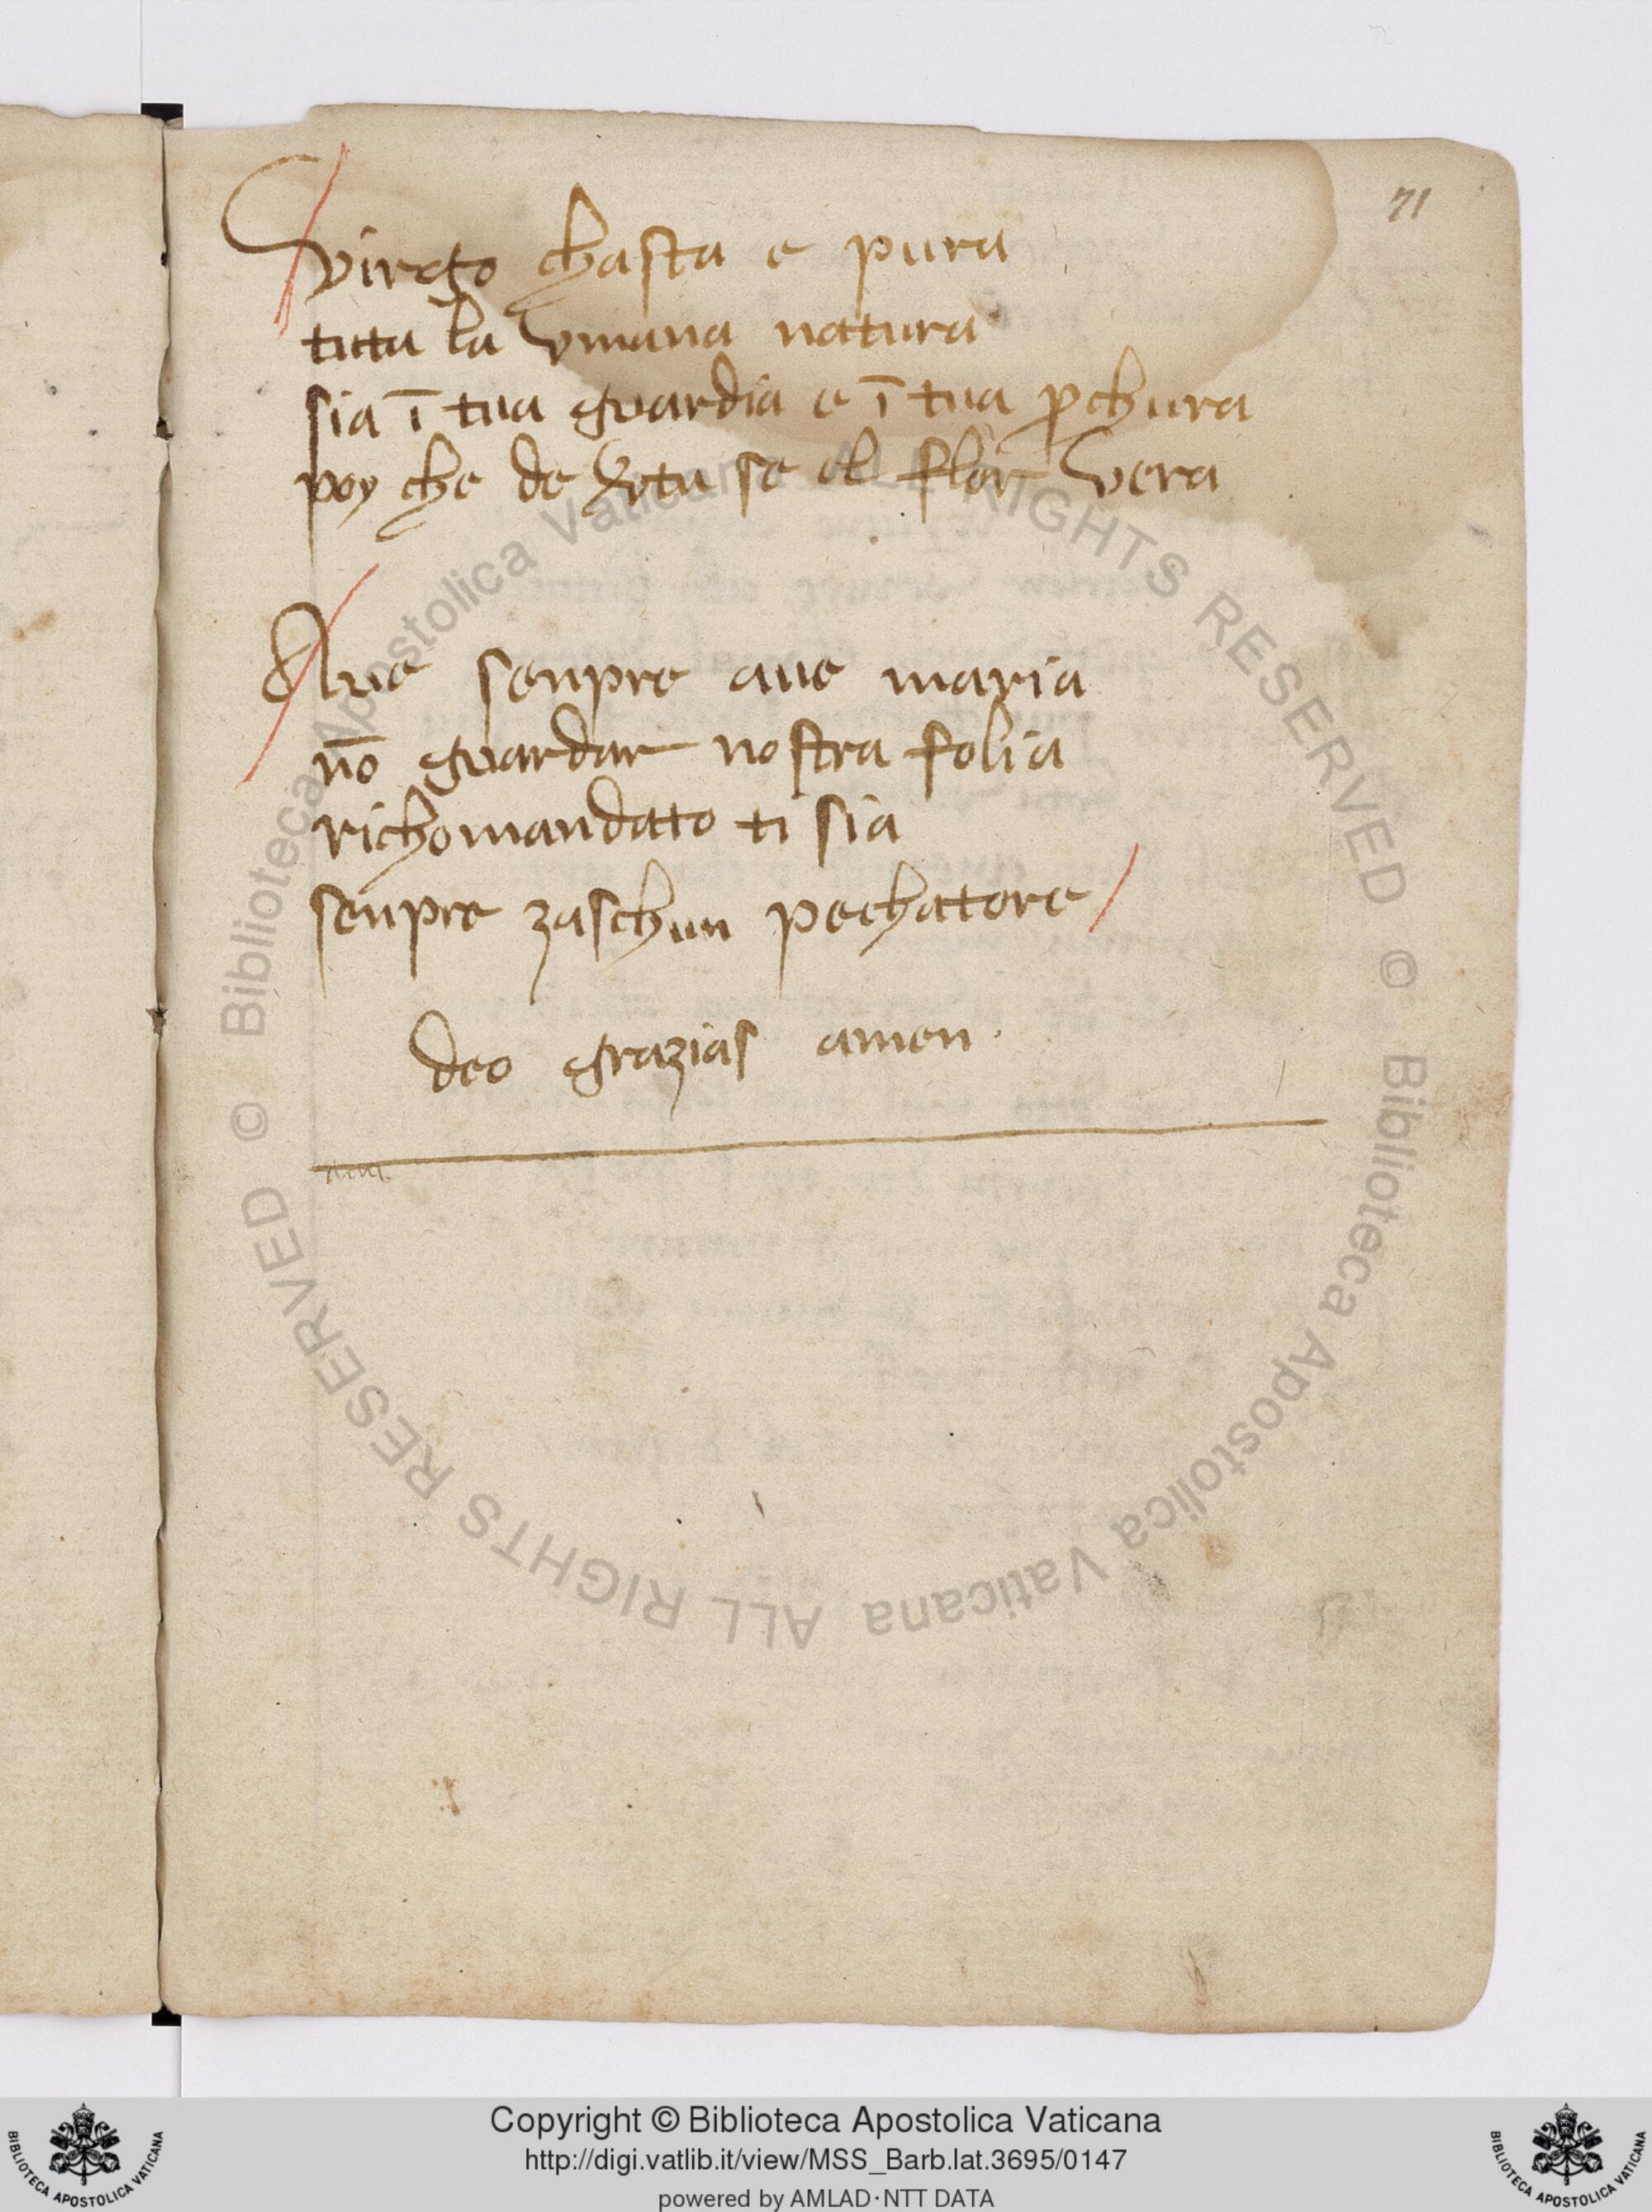 71
Virgo chasta e pura
tuta la vmana natura
sia ī tua guardia e ī tua ꝓchura
poy che de
se el flor vera
Ave senpre aue maria
nō guardar nostra folia
richomandato ti sia
senpre zaschun pechatore /
deo grazias amen.
© Biblioteca Apostolica Vaticana ALL RIGHTS RESERVED
© Biblioteca Apostolica Vaticana ALL RIGHTS RESERVED
BIBLIOTECA APOSTOLICA VATICANA
Copyright © Biblioteca Apostolica Vaticana
http://digi.vatlib.it/view/MSS_Barb.lat.3695/0147
powered by AMLAD·NTT DATA
BIBLIOTECA APOSTOLICA VATICANA